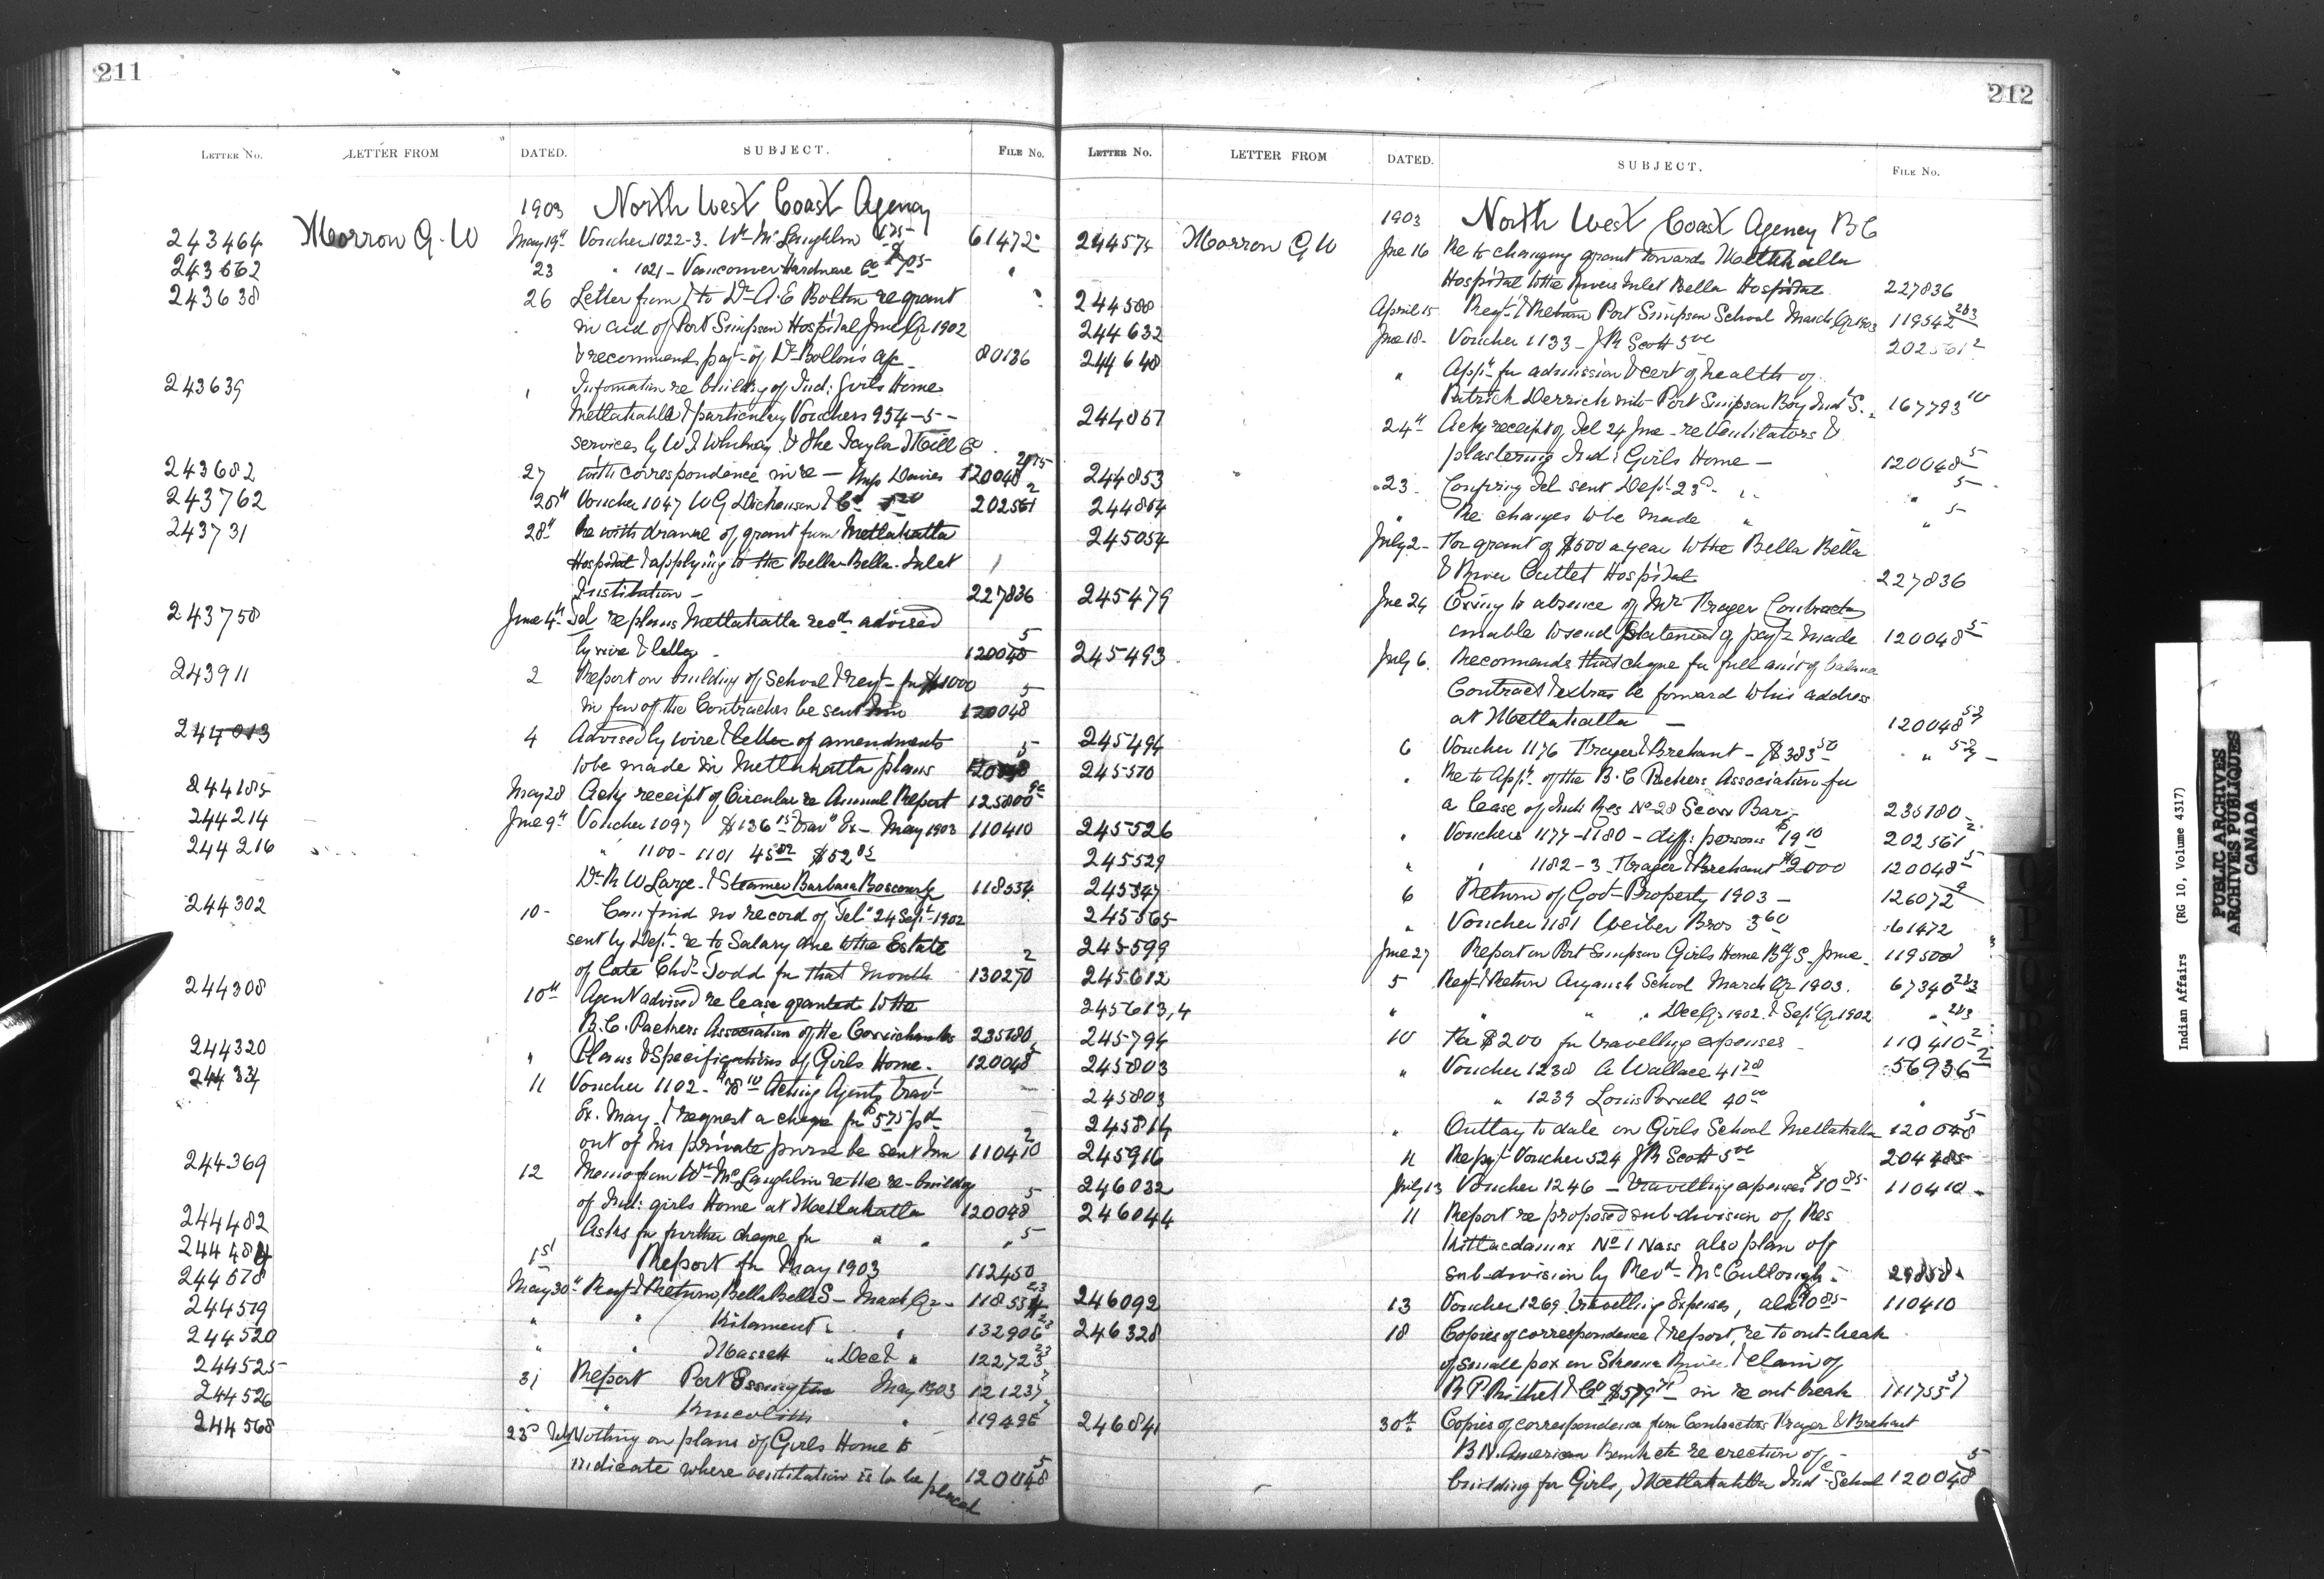 211
LETTER No. LETTER FROM DATED. SUBJECT. FILE No.
1903 North West Coast Agency
243464 Morrow G. W May 19th Voucher 1022-3. Wm McLaughlin 61472
243662 23 " 1021 - Vancouver Hardware Co "
243638 26 Letter from & to Dr A. E Bolton re grant
in aid of Port Simpson Hospital June Qr 1902
& recommends payt of Dr Bolton's a/c - 80136
243639 Information re building of Ind: Girls Home
Metlakahtla & particulars Vouchers 954-5-
services by W. J. Whitney & The Taylor Mill Co
243682 27 with correspondence in re - Davies 120048
243762 28th Voucher 1047 W G Dickenson & Co 202561 2
243731 28th Re withdrawal of grant from Metlakatla
Hospital & applying to the Bella-Bella. Inlet
Institution - 227836
243758 June 4th Tel re plans Metlakatla recd advised
by wire & letter - 120048 5
243911 2 Report on building of School & reqt for $1000
in fav of the Contractors be sent him 120048 5
244013 4 Advised by wire & letter of amendments
to be made in Metlakatla plans 120048 5
244185 May 28 Ackg receipt of Circular re Annual Report 125800
244214 June 9th Voucher 1097 $136 15 Trav Ex - May 1903 110410
244216 " 1100 - 1101 $52
Dr R W Large & Steamer Barbara Boscowitz 118534
244302 10 - Can find no record of Tel. 24 Sept 1902
sent by Dept re to Salary due to the Estate
of late Chs Todd for that month 130270 2
244308 10th Agent advised re lease granted to the
B. C. Packers Association of the 235180
244320 " Plans & Specifications of Girls Home. 120048 5
11 Voucher 1102 - Acting Agents trav
Ex. May, & request a cheque for $575 pd
out of his private purse be sent him 110410 2
244369 12 Memo from Wm McLaughlin re the re-building
of Ind: girls Home at Metlakatla 120048 5
244482 Asks for further cheque for " " " 5
1st Report for May 1903 112450
May 30th Reqt & Return, Bella Bella S - March Qr - 118534
244519 " " Kitamaat " " 132906
244520 " " Massett " Dec & " 122723
244525 31 Report Port Essington May 1903 121237
244526 " " Kincolith " 119496
244568 23rd Nothing on plans of Girls Home to
indicate where ventilation is to be placed 120048 5
212
LETTER No. LETTER FROM DATED. SUBJECT. FILE No.
1903 North West Coast Agency BC
244574 Morrow G W Jne 16 Re to changing grant towards Metlakatla
Hospital to the Rivers Inlet Bella Hospital 227836
244588 April 15 Reqt & Return Port Simpson School March Qr 1903 119542
244632 Jne 18 - Voucher 1133 - J R Scott 5 00 202561 2
244648 " Appn for admission & cert of health of
Patrick Derrick into Port Simpson Boy Ind S. 167793
24th Ackg receipt of Tel 24 June - re Ventilators &
plastering Ind: Girls Home - 120048 5
244853 " 23 - Confirming Tel sent Dept 23rd - " " 5
244854 " Re changes to be made " " 5
245054 July 2 - For grant of $500 a year to the Bella Bella
& River Outlet Hospital 227836
245479 Jne 24 Owing to absence of Mr Trager Contractor
unable to send statement of payts made 120048 5
245493 July 6. Recommends that cheque for full amt of balance
Contract & extras be forward to his address
at Metlakatla - 120048
245494 6 Voucher 1176 Trager & Brehant - $383 50 "
245510 " Re to Appn of the B. C Packers Association for
a lease of Ind: Res No 28 Scow Bar 235180
245526 " Vouchers 1177-1180 - diff: persons $19 10 202561 2
245529 " " 1182-3 Trager & Brehant $2000 120048 5
245547 6 Return of Govt Property 1903 - 126072
245565 " Voucher 1181 Weiber Bros 3 60 61472
245599 June 27 Report on Port Simpson Girls Home June 119500
245612 5 Reqt & Return Aiyansh School March Qr 1903. 67340
245613,4 " " " " Dec Qr 1902 & Sept Qr 1902 "
245794 10 For $200 for travelling expenses - 110410 2
245803 " Voucher 1238 A Wallace 41 56936 2
245803 " 1239 40 00 "
245814 " Outlay to date on Girls School Metlakatla 120048 5
245916 11 Re payt Voucher 524 J R Scott 5 00 204485
246032 July 13 Voucher 1246 - travelling expenses $10 85 110410
246044 11 Report re proposed sub-division of Res
Kitlacdamax No 1 Nass also plan of
sub-division by Revd McCullough -
246092 13 Voucher 1269 travelling Expenses, 110410
246328 18 Copies of correspondence & report, re to out-break
of small pox on Skeena River. & claim of
R P Rithet & Co in re out break
246841 30th Copies of correspondence from Contractors Trager & Brehaut
B N. American Bank etc re erection of
building for Girls, Metlakahtla Ind School 120048 5
Indian Affairs (RG 10, Volume 4317)
PUBLIC ARCHIVES
ARCHIVES PUBLIQUES
CANADA